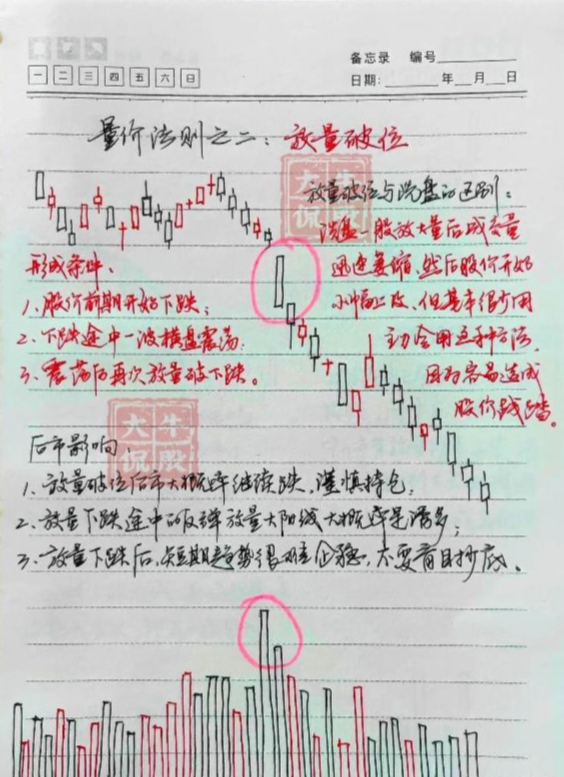 备忘录 编号
一 二 三 四 五 六 日
日期: 年 月 日
量价法则之二：放量破位
放量破位与洗盘的区别：
洗盘一般放大量后成交量
迅速萎缩，然后股价开始
小幅上攻，但基本很少用
主动会用这种方法，
因为容易造成
股价践踏。
形成条件：
1、股价前期开始下跌；
2、下跌途中一波横盘震荡；
3、震荡后再次放量破下跌。
大牛
侃股
大牛
侃股
后市影响：
1、放量破位后市大概率继续跌，谨慎持仓；
2、放量下跌途中的反弹放量大阳线大概率是诱多；
3、放量下跌后，短期趋势很难企稳，不要盲目抄底。